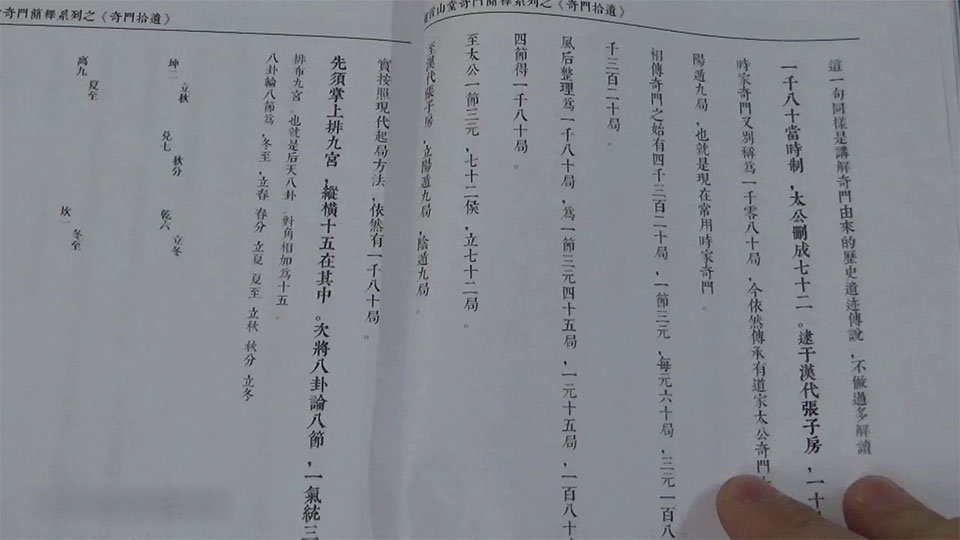 山堂奇門簡繹系列之《奇門拾遺》
這一句同樣是講解奇門由來的歷史道迹傳說，不做過多解讀
一千八十當時制，太公刪成七十二。逮于漢代張子房，一十
時家奇門又別稱爲一千零八十局，今依然傳承有道家太公奇門
陽遁九局，也就是現在常用時家奇門
相傳奇門之始有四千三百二十局，一節三元，每元六十局，三元一百八
千三百二十局。
風后整理爲一千八十局，爲一節三元四十五局，一元十五局，一百八十
四節得一千八十局。
至太公一節三元，七十二侯，立七十二局。
至漢代張子房，立陽遁九局，陰遁九局。
實按照現代起局方法，依然有一千八十局。
奇門簡繹系列之《奇門拾遺》
先須掌上排九宮，縱橫十五在其中。次將八卦論八節，一氣統三
排布九宮。也就是后天八卦。對角相加爲十五。
八卦輪八節爲，冬至，立春 春分 立夏 夏至 立秋 秋分 立冬
坤二 立秋 兌七 秋分 乾六 立冬
离九 夏至 坎一 冬至